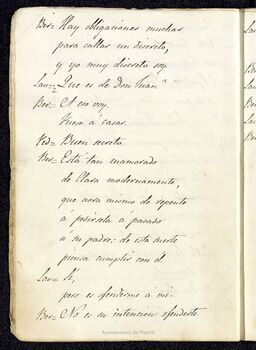 Ber= Hay obligaciones muchas
para callar un discreto,
y yo muy discreto soy.
Lau= Que es de Don Juan?
Ber= A eso voy.
Fuese á casar.
Ped= Buen secreto.
Ber= Está tan enamorado
de Clara modernamente,
que aora mismo de repente
á pedirsela á pasado
á su padre: de esta suerte
piensa cumplir con él.
Lau= Si,
pero es ofenderme á mi.
Ber= No es su intencion ofenderte
Ayuntamiento de Madrid